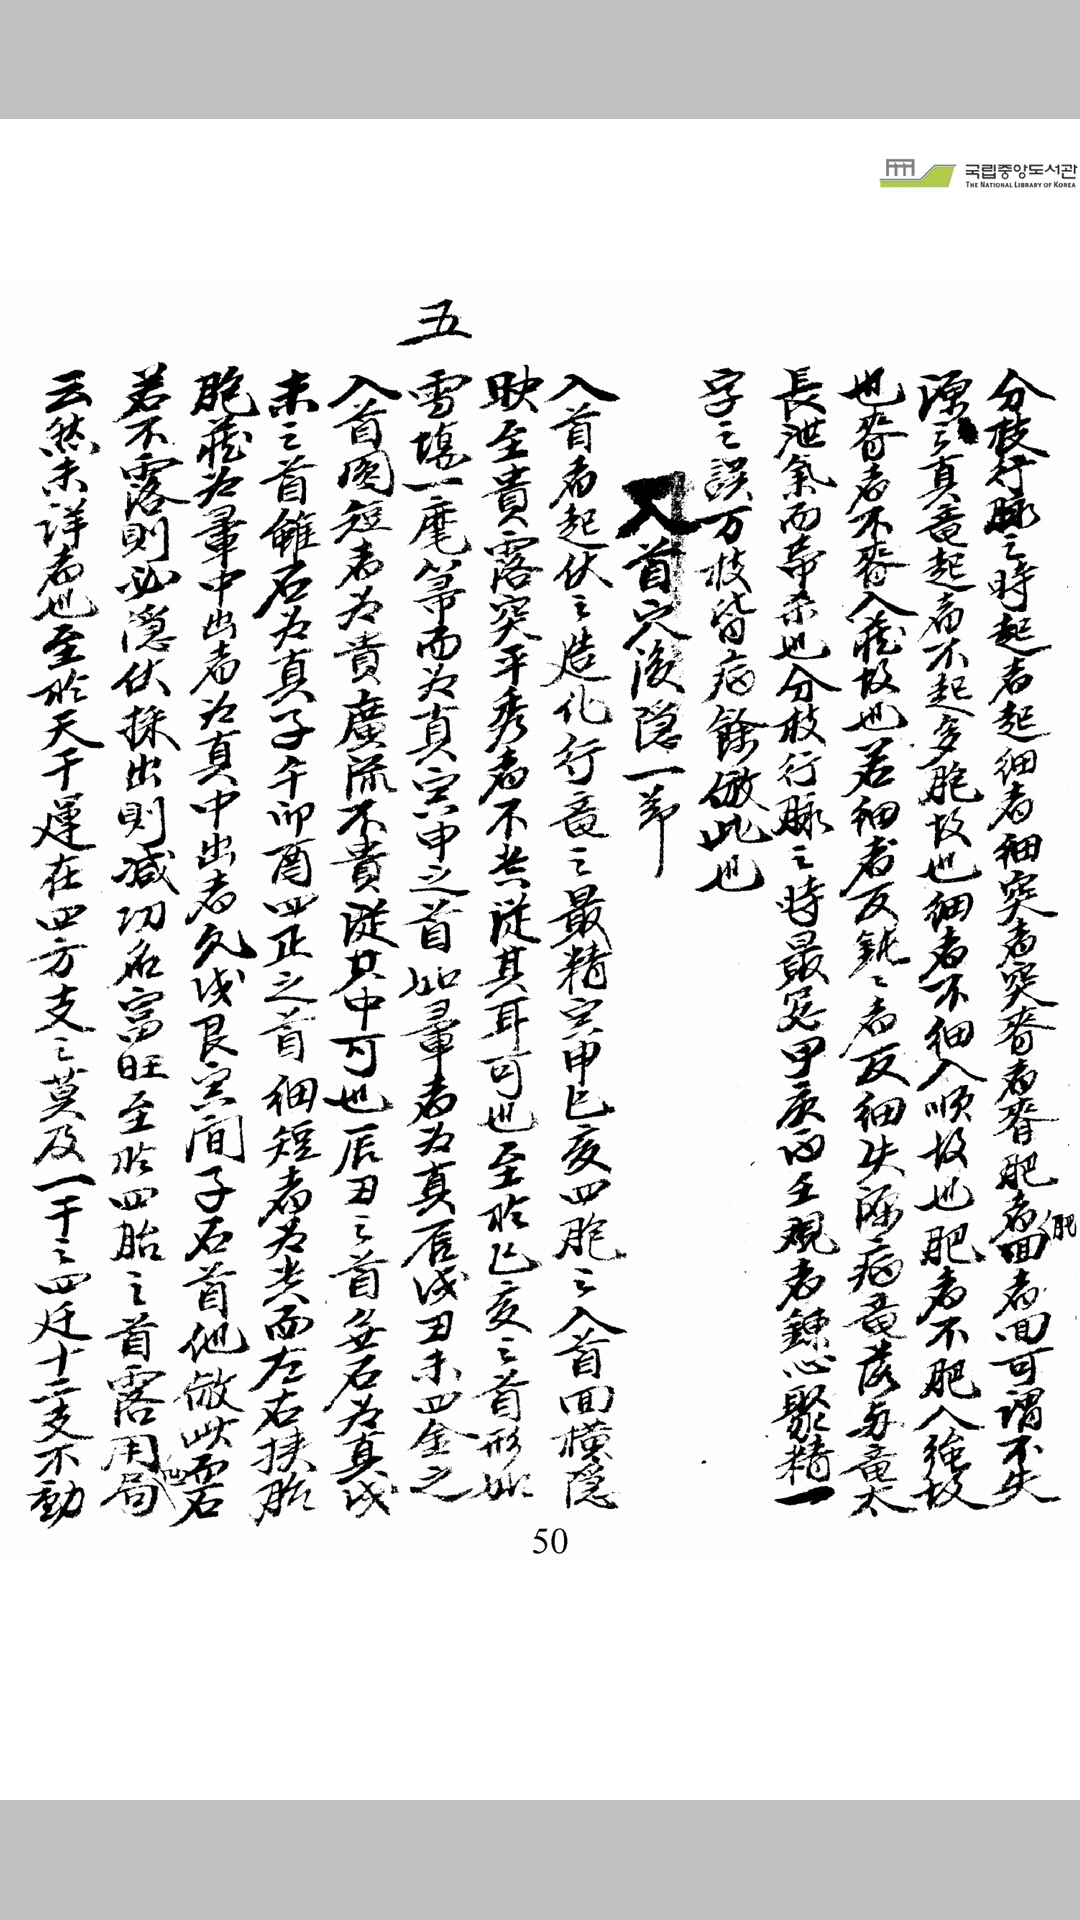 국립중앙도서관
THE NATIONAL LIBRARY OF KOREA
分枝行脉之時起者起細者細突者突脊者脊肥者肥回者回可謂不失
源之真竜起者不起多胞故也細者不細入順故也肥者不肥入强故
也脊者不脊入藏故也若細者反鈍之者反細失源病竜落与竜太
長泄氣而帶杀也分枝行脉之時最忌甲庚丙壬觀者鍊心聚精一
字之誤万枝皆病餘倣此也
入首穴後隱一節
入首者起伏之造化行竜之最精寅申巳亥四胞之入首回橫隱
映至貴露突平秀者不貴從其耳可也至於巳亥之首形如
五
雪塊一毫第而为真寅申之首如暈者为真辰戌丑未四金之
入首圓短者为貴廣流不貴從其中可也辰丑之首無石为真戌
未之首雖石为真子午卯酉四正之首細短者为貴而左右挾胎
胞藏为暈中出者为真中出者允戌艮寅間子石首他倣此露石
若不露則必隱伏採出則减功名富旺至於四胎之首露用局
云然未詳者也至於天干運在四方支之莫及一干之四廷十二支不動
50